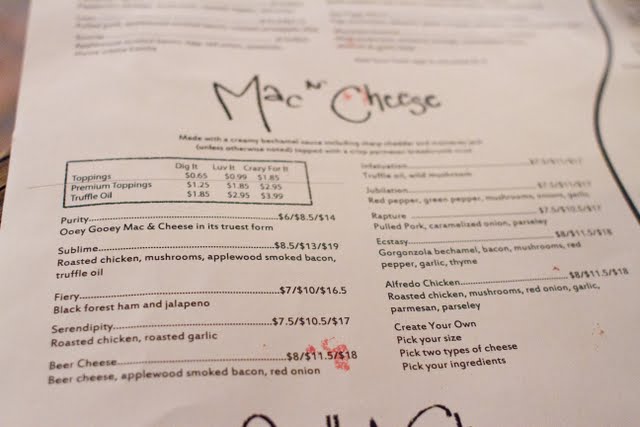 Mac N' Cheese
Made with a creamy bechamel sauce including sharp cheddar and monterey jack
(unless otherwise noted) topped with a crisp parmesan breadcrumb crust
Dig It Luv It Crazy For It
Toppings $0.65 $0.99 $1.85
Premium Toppings $1.25 $1.85 $2.95
Truffle Oil $1.85 $2.95 $3.99
Purity $6/$8.5/$14
Ooey Gooey Mac & Cheese in its truest form
Sublime $8.5/$13/$19
Roasted chicken, mushrooms, applewood smoked bacon,
truffle oil
Fiery $7/$10/$16.5
Black forest ham and jalapeno
Serendipity $7.5/$10.5/$17
Roasted chicken, roasted garlic
Beer Cheese $8/$11.5/$18
Beer cheese, applewood smoked bacon, red onion
Infatuation $7.5/$11/$17
Truffle oil, wild mushroom
Jubilation $7.5/$11/$17
Red pepper, green pepper, mushrooms, onion, garlic
Rapture $7.5/$10.5/$17
Pulled Pork, caramelized onion, parseley
Ecstasy $8/$11.5/$18
Gorgonzola bechamel, bacon, mushrooms, red
pepper, garlic, thyme
Alfredo Chicken $8/$11.5/$18
Roasted chicken, mushrooms, red onion, garlic,
parmesan, parseley
Create Your Own
Pick your size
Pick two types of cheese
Pick your ingredients